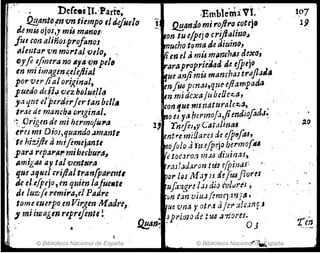 Defcos II. Parte,
Quanto en vn tiempo el desuelo
de mis ojos, y mis manos
fue con aliños profanos
alentar vn mortal velo,
oy se esmera no aya vn pelo
en mi imagen celestial
por ver si al original,
puedo de la vez bolue lla
ya que el perder ser tan bella
trae de mancha original.
Origen de mi hermosura
eres mi Dios, quando amante
te hiziste à mi semejante
para reparar mi hechura,
amiga y tal ventura
que aquel cristal transparente
de el espejo, en quien la fuente
de luz se remira, el Padre
tome cuerpo en Virgen Madre,
y mi imagen represente!
Quan-
Emblema VI. 107
Quando mi rostro cotejo 19
con tu espejo cristalino,
mucho toma de diuino,
si en el à mis manchas dexo,
rara propriedad de espejo
que ansi mis manchas traslada
en sus penas, que estampada
en mi dexa su belleza,
con que mi naturaleza,
no es ya hermosa, si endiosada.
Ynesis, y Catalinas 20
entre millares de esposas,
no solo à tu espejo hermosas
se tocaron mas diuinas,
trasladaron tus espinas
por las May
tu sangre las dio colores,
vn tan viua
que vna y otra à ser alcança
primo de tus amores.
O 3 Ten
© Biblioteca Nacional de España
© Biblioteca Nacional de España